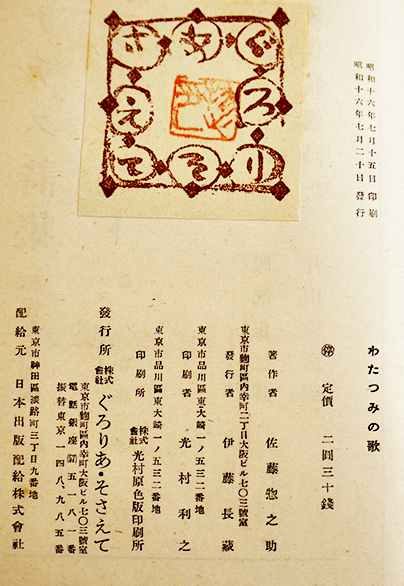 ぐろり
あそ
さえて
昭和十六年七月十五日印刷
昭和十六年七月二十日發行
わたつみの歌
停 定價 二圓三十錢
著作者 佐藤惣之助
東京市麴町區內幸町二丁目大阪ビル七〇三號室
發行者 伊藤長藏
東京市品川區東大崎一ノ五三二番地
印刷者 光村利之
東京市品川區東大崎一ノ五三二番地
印刷所 株式會社 光村原色版印刷所
發行所 株式會社 ぐろりあ・そさえて
東京市麴町區內幸町大阪ビル七〇三號室
電話銀座 五一八一番
振替東京一四八、九八五番
東京市神田區淡路町二丁目九番地
配給元 日本出版配給株式會社